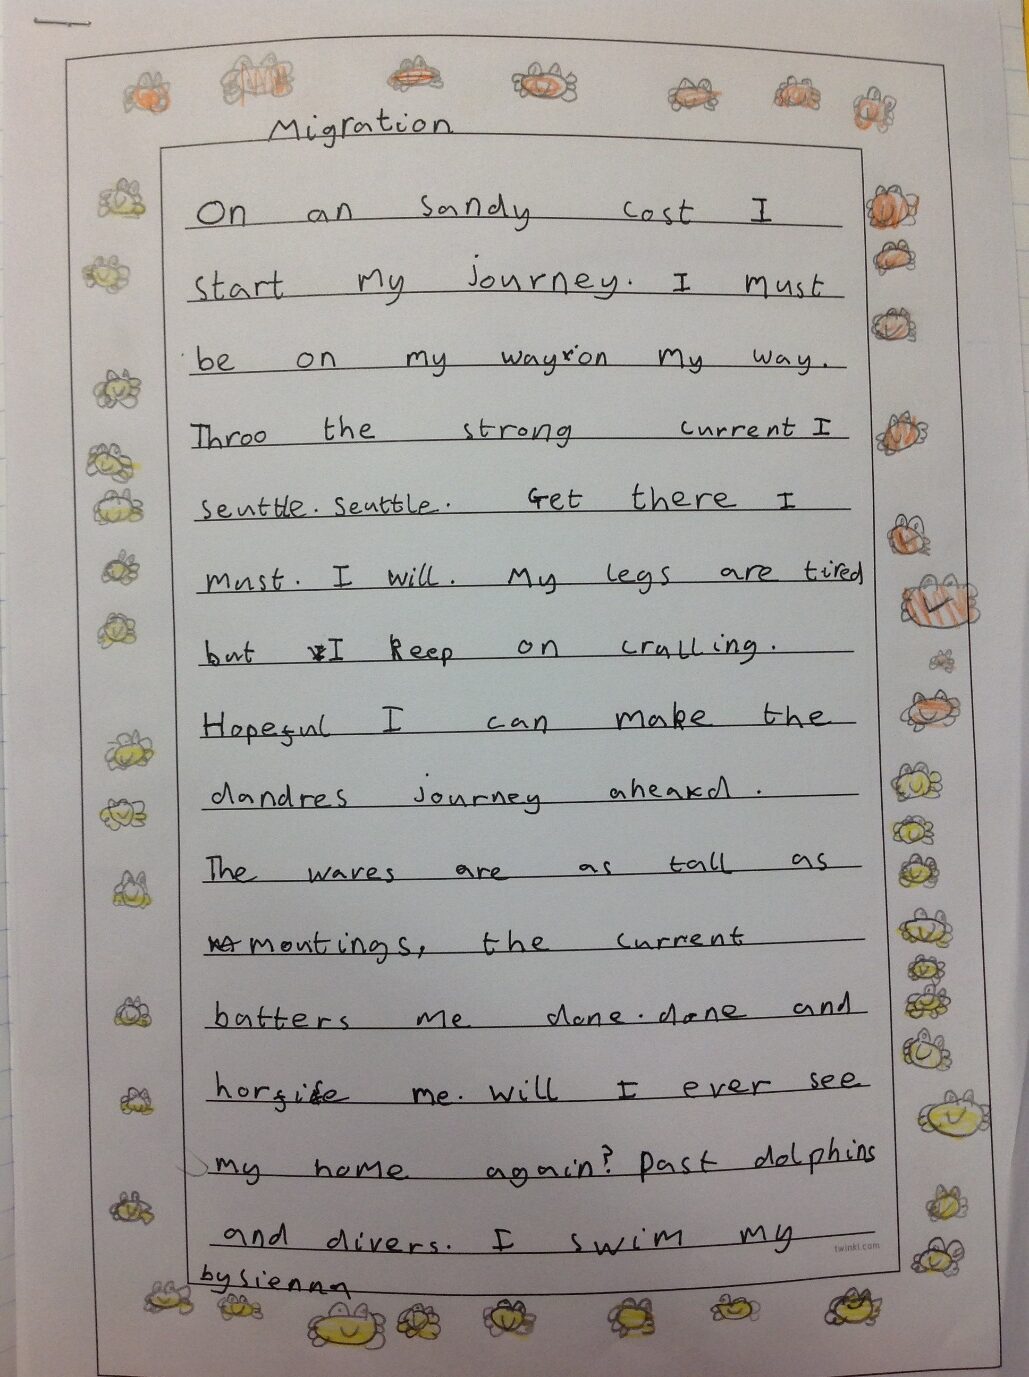 Migration
On an sandy cost I
start my journey. I must
be on my way on my way.
Throo the strong current I
scuttle. scuttle. Get there I
must. I will. My legs are tired
but I keep on cralling.
Hopeful I can make the
dandres journey aheakd.
The waves are as tall as
montings, the current
batters me done. done and
horfife me. will I ever see
my home again? past dolphins
and divers. I swim my
twinkl.com
by sienna